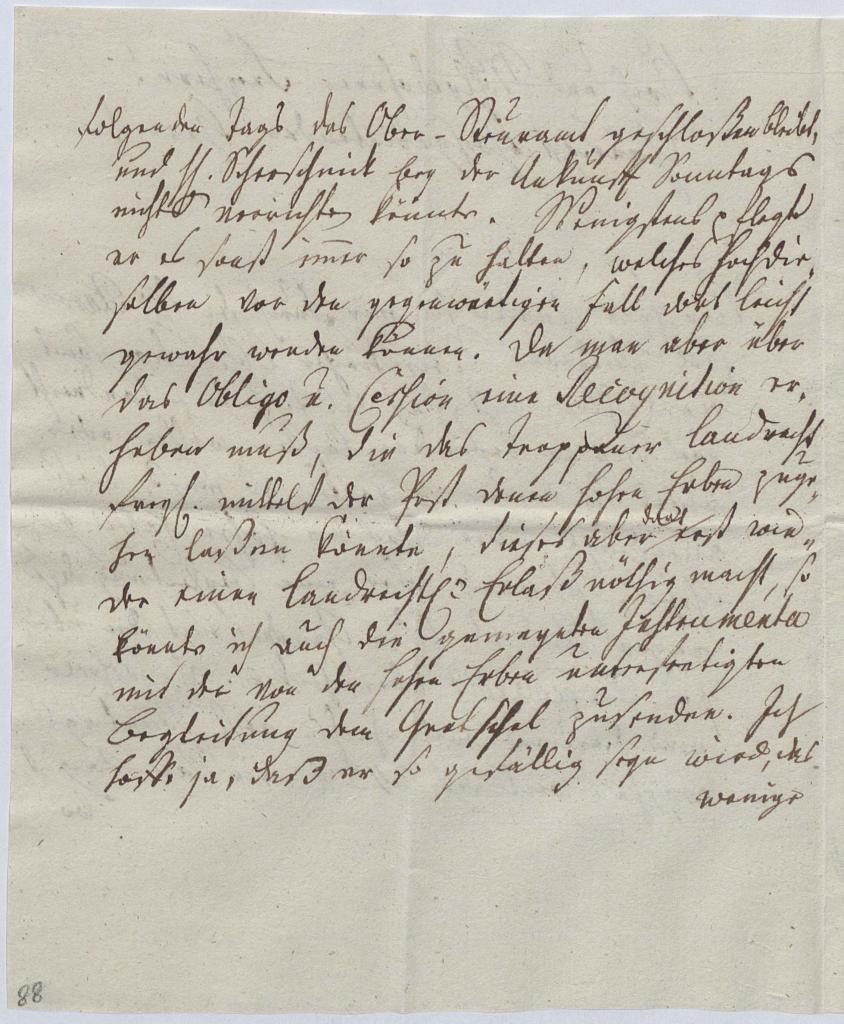 folgenden Tags das Ober-Steuramt geschloßen bleibt,
und H. Scherschnick bey der Ankunft Sonntags
nichts verrichten könnte. Wenigstens pflegte
er es sonst immer so zu halten, welches Hochdie-
selben vor den gegenwärtigen Fall dort leicht
gewahr werden können. Da man aber über
das Obligo u. Cession eine Recognition er-
heben muß, die das Troppauer Landrecht
mittelst der Post denen hohen Erben zuge-
hen laßen könnte, dieses aber erst wie-
der einen Landrechtl. Erlaß nöthig macht, so
könnte ich auch die Instrumenta
mit der von den hohen Erben unterfertigten
Begleitung dem Gretschel zusenden. Ich
hoffe ja, daß er so gefällig seyn wird, das
wenige
88